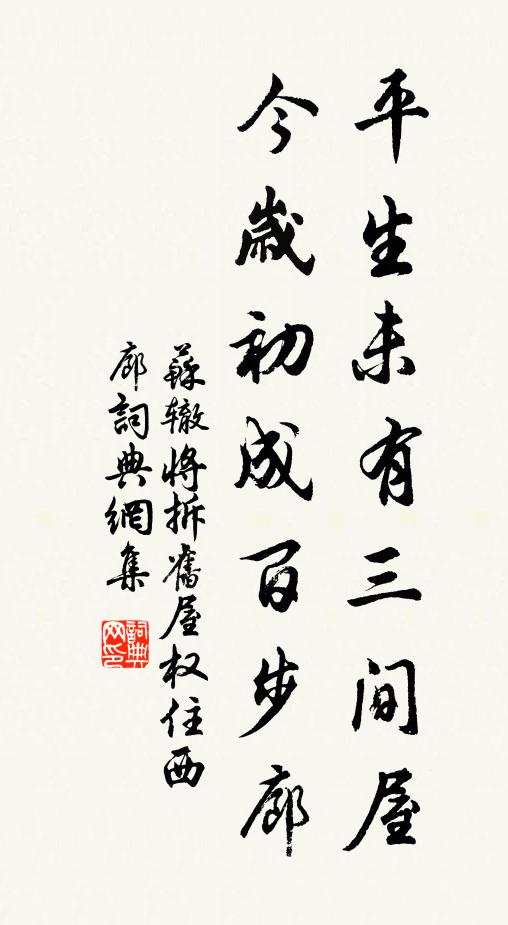 平生未有三间屋
今歲初成百步廊
蘇辙將拆舊屋权住西
廊詞典網集
詞典网印